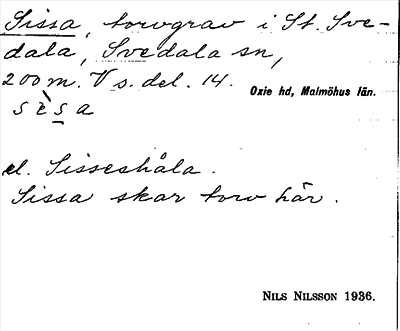 Sissa, torvgrav i St. Sve-
dala, Svedala sn,
200 m. V s. del. 14.
Oxie hd, Malmöhus län.
sὶsa
el. Sisseshåla.
Sissa skar torv här.
NILS NILSSON 1936.